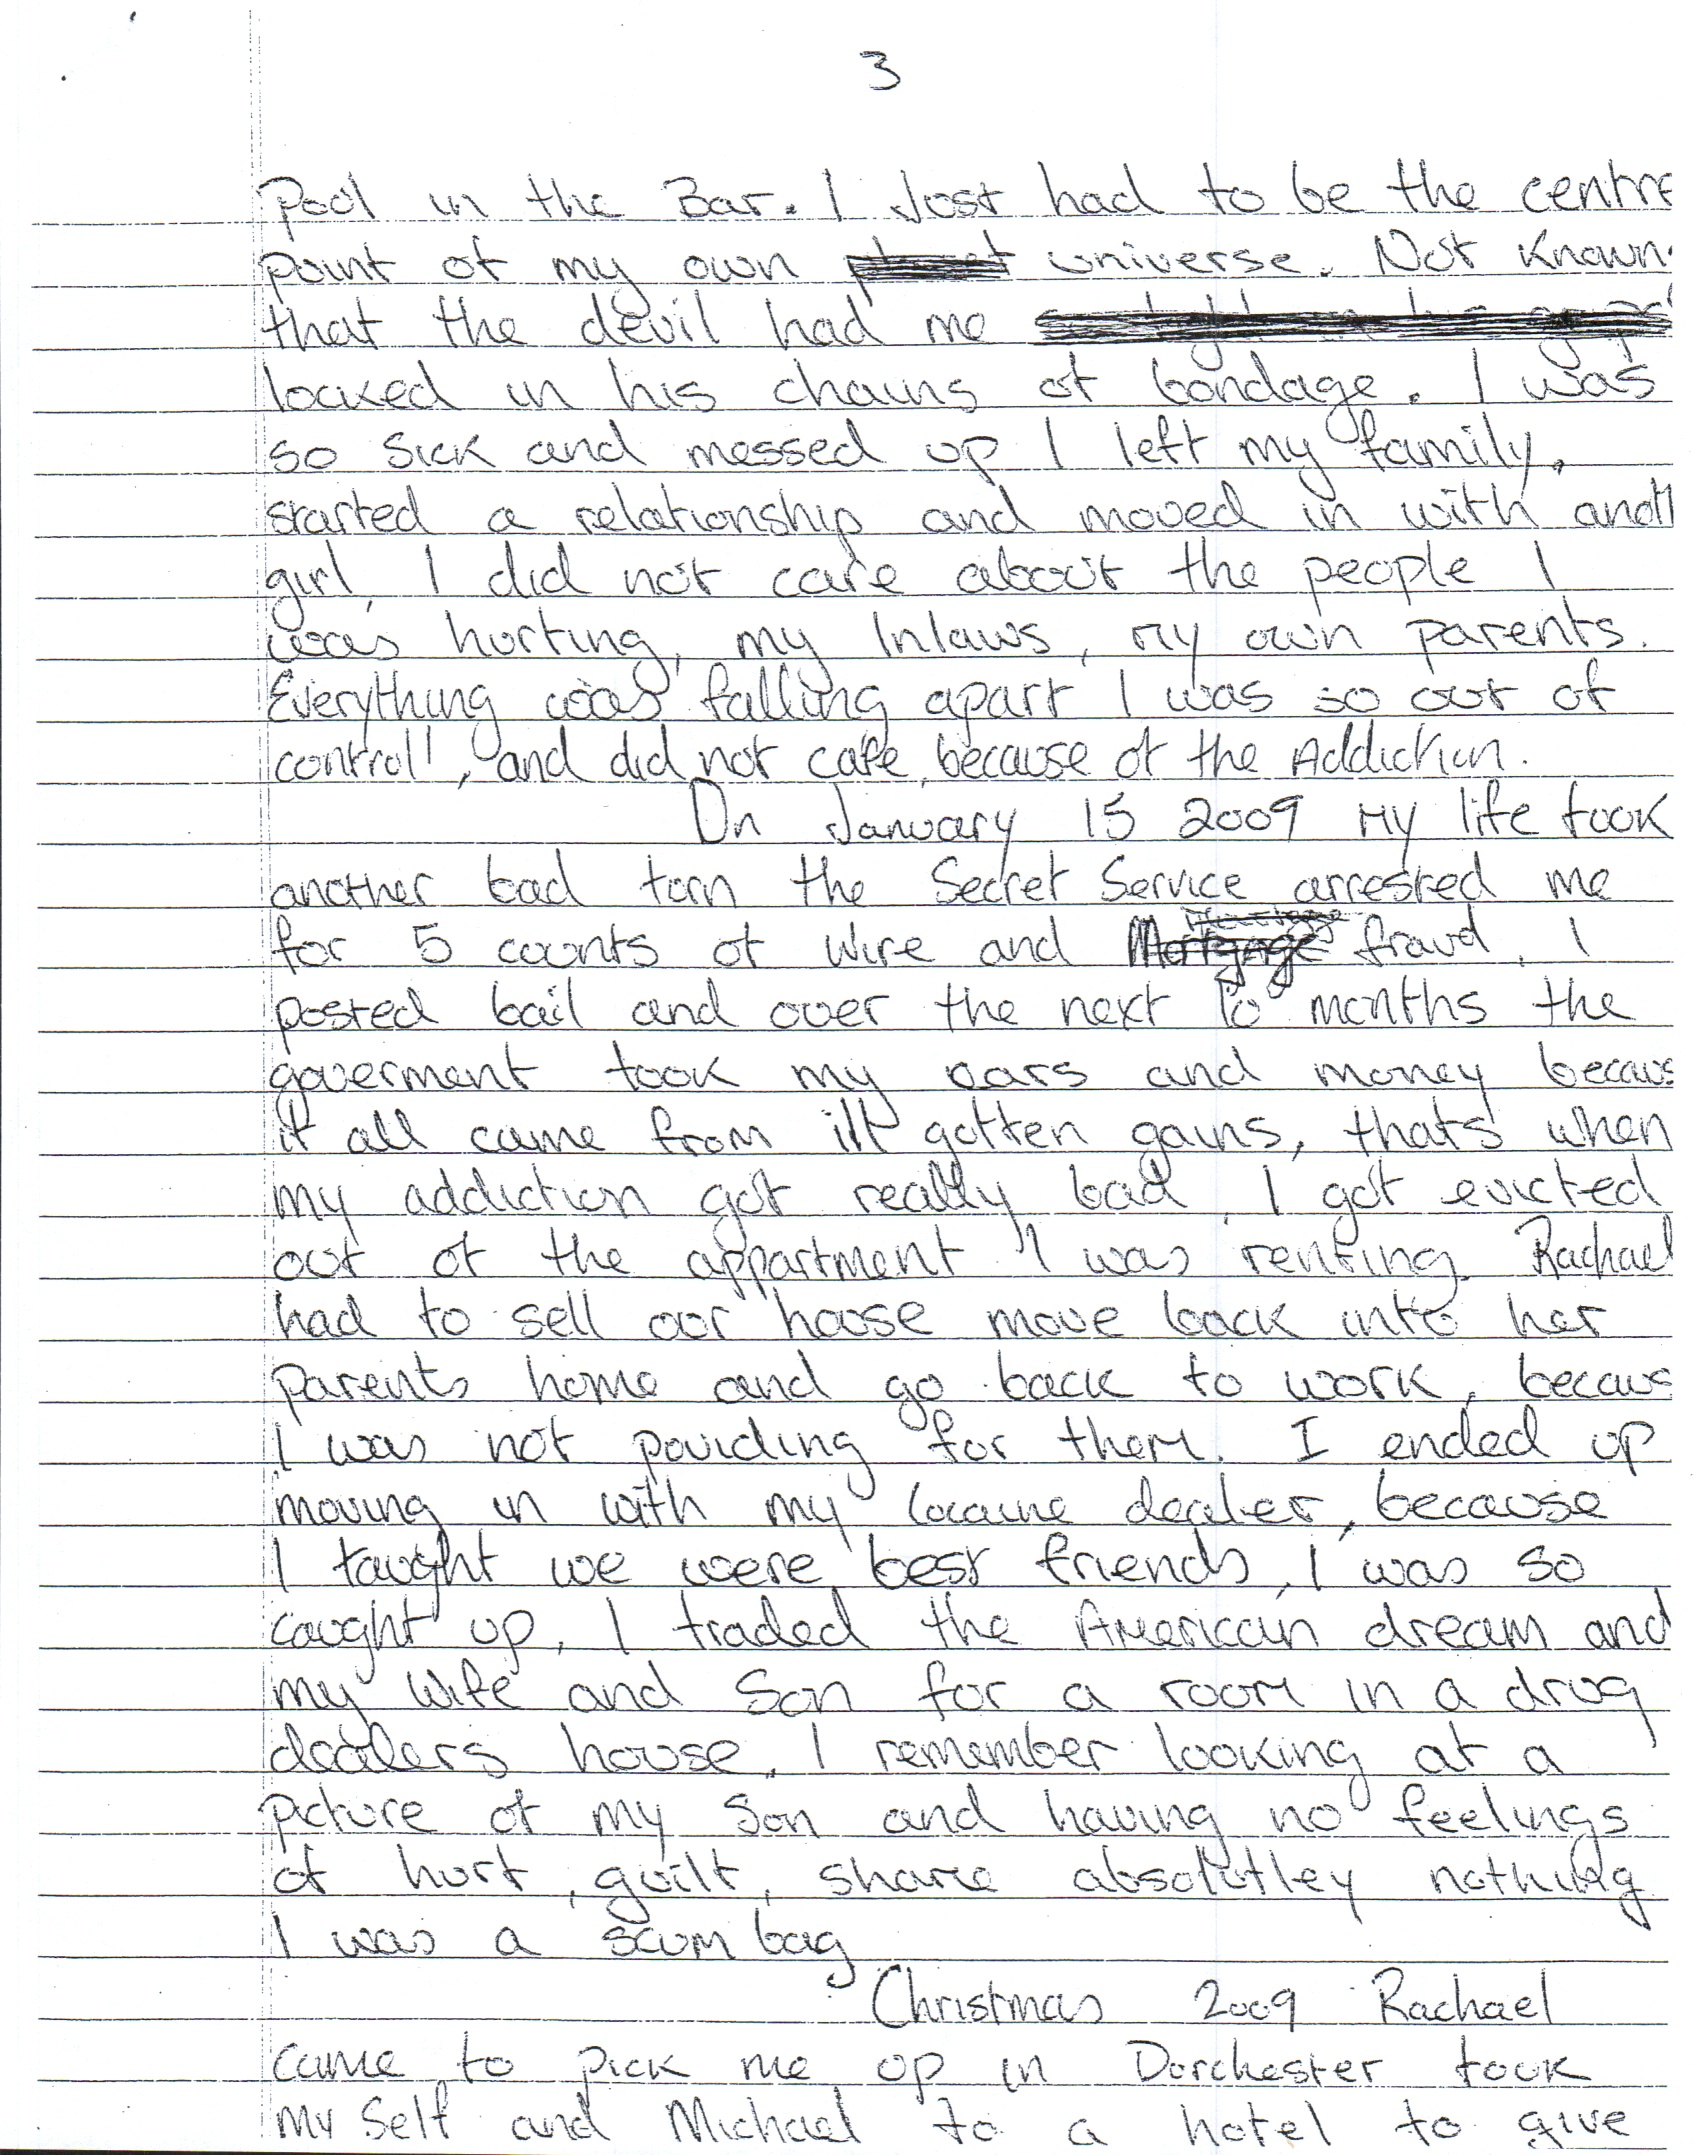 3
Pool in the Bar. I Just had to be the centre
point of my own universe. Not Known
that the devil had me
locked in his chains of bondage. I was
so sick and messed up I left my family,
started a relationship and moved in with anoth
girl, I did not care about the people I
was hurting, my Inlaws, my own parents.
Everything was falling apart I was so out of
control, and did not care, because of the Addiction.
On January 15 2009 My life took
another bad turn the Secret Service arrested me
for 5 counts of wire and Mortgage fraud, I
posted bail and over the next 10 months the
goverment took my cars and money becaus
it all came from ill gotten gains, thats when
my addiction got really bad, I got evicted
out of the appartment I was renting. Rachael
had to sell our house move back into her
parents home and go back to work, becaus
I was not pouiding for them. I ended up
moving in with my Cocaine dealer, because
I taught we were best friends, I was so
caught up, I traded the American dream and
my wife and Son for a room in a drug
dealers house. I remember looking at a
picture of my Son and having no feelings
of hurt, guilt, shame absolutley nothing
I was a scum bag
Christmas 2009 Rachael
came to pick me up in Dorchester took
My Self and Michael to a hotel to give